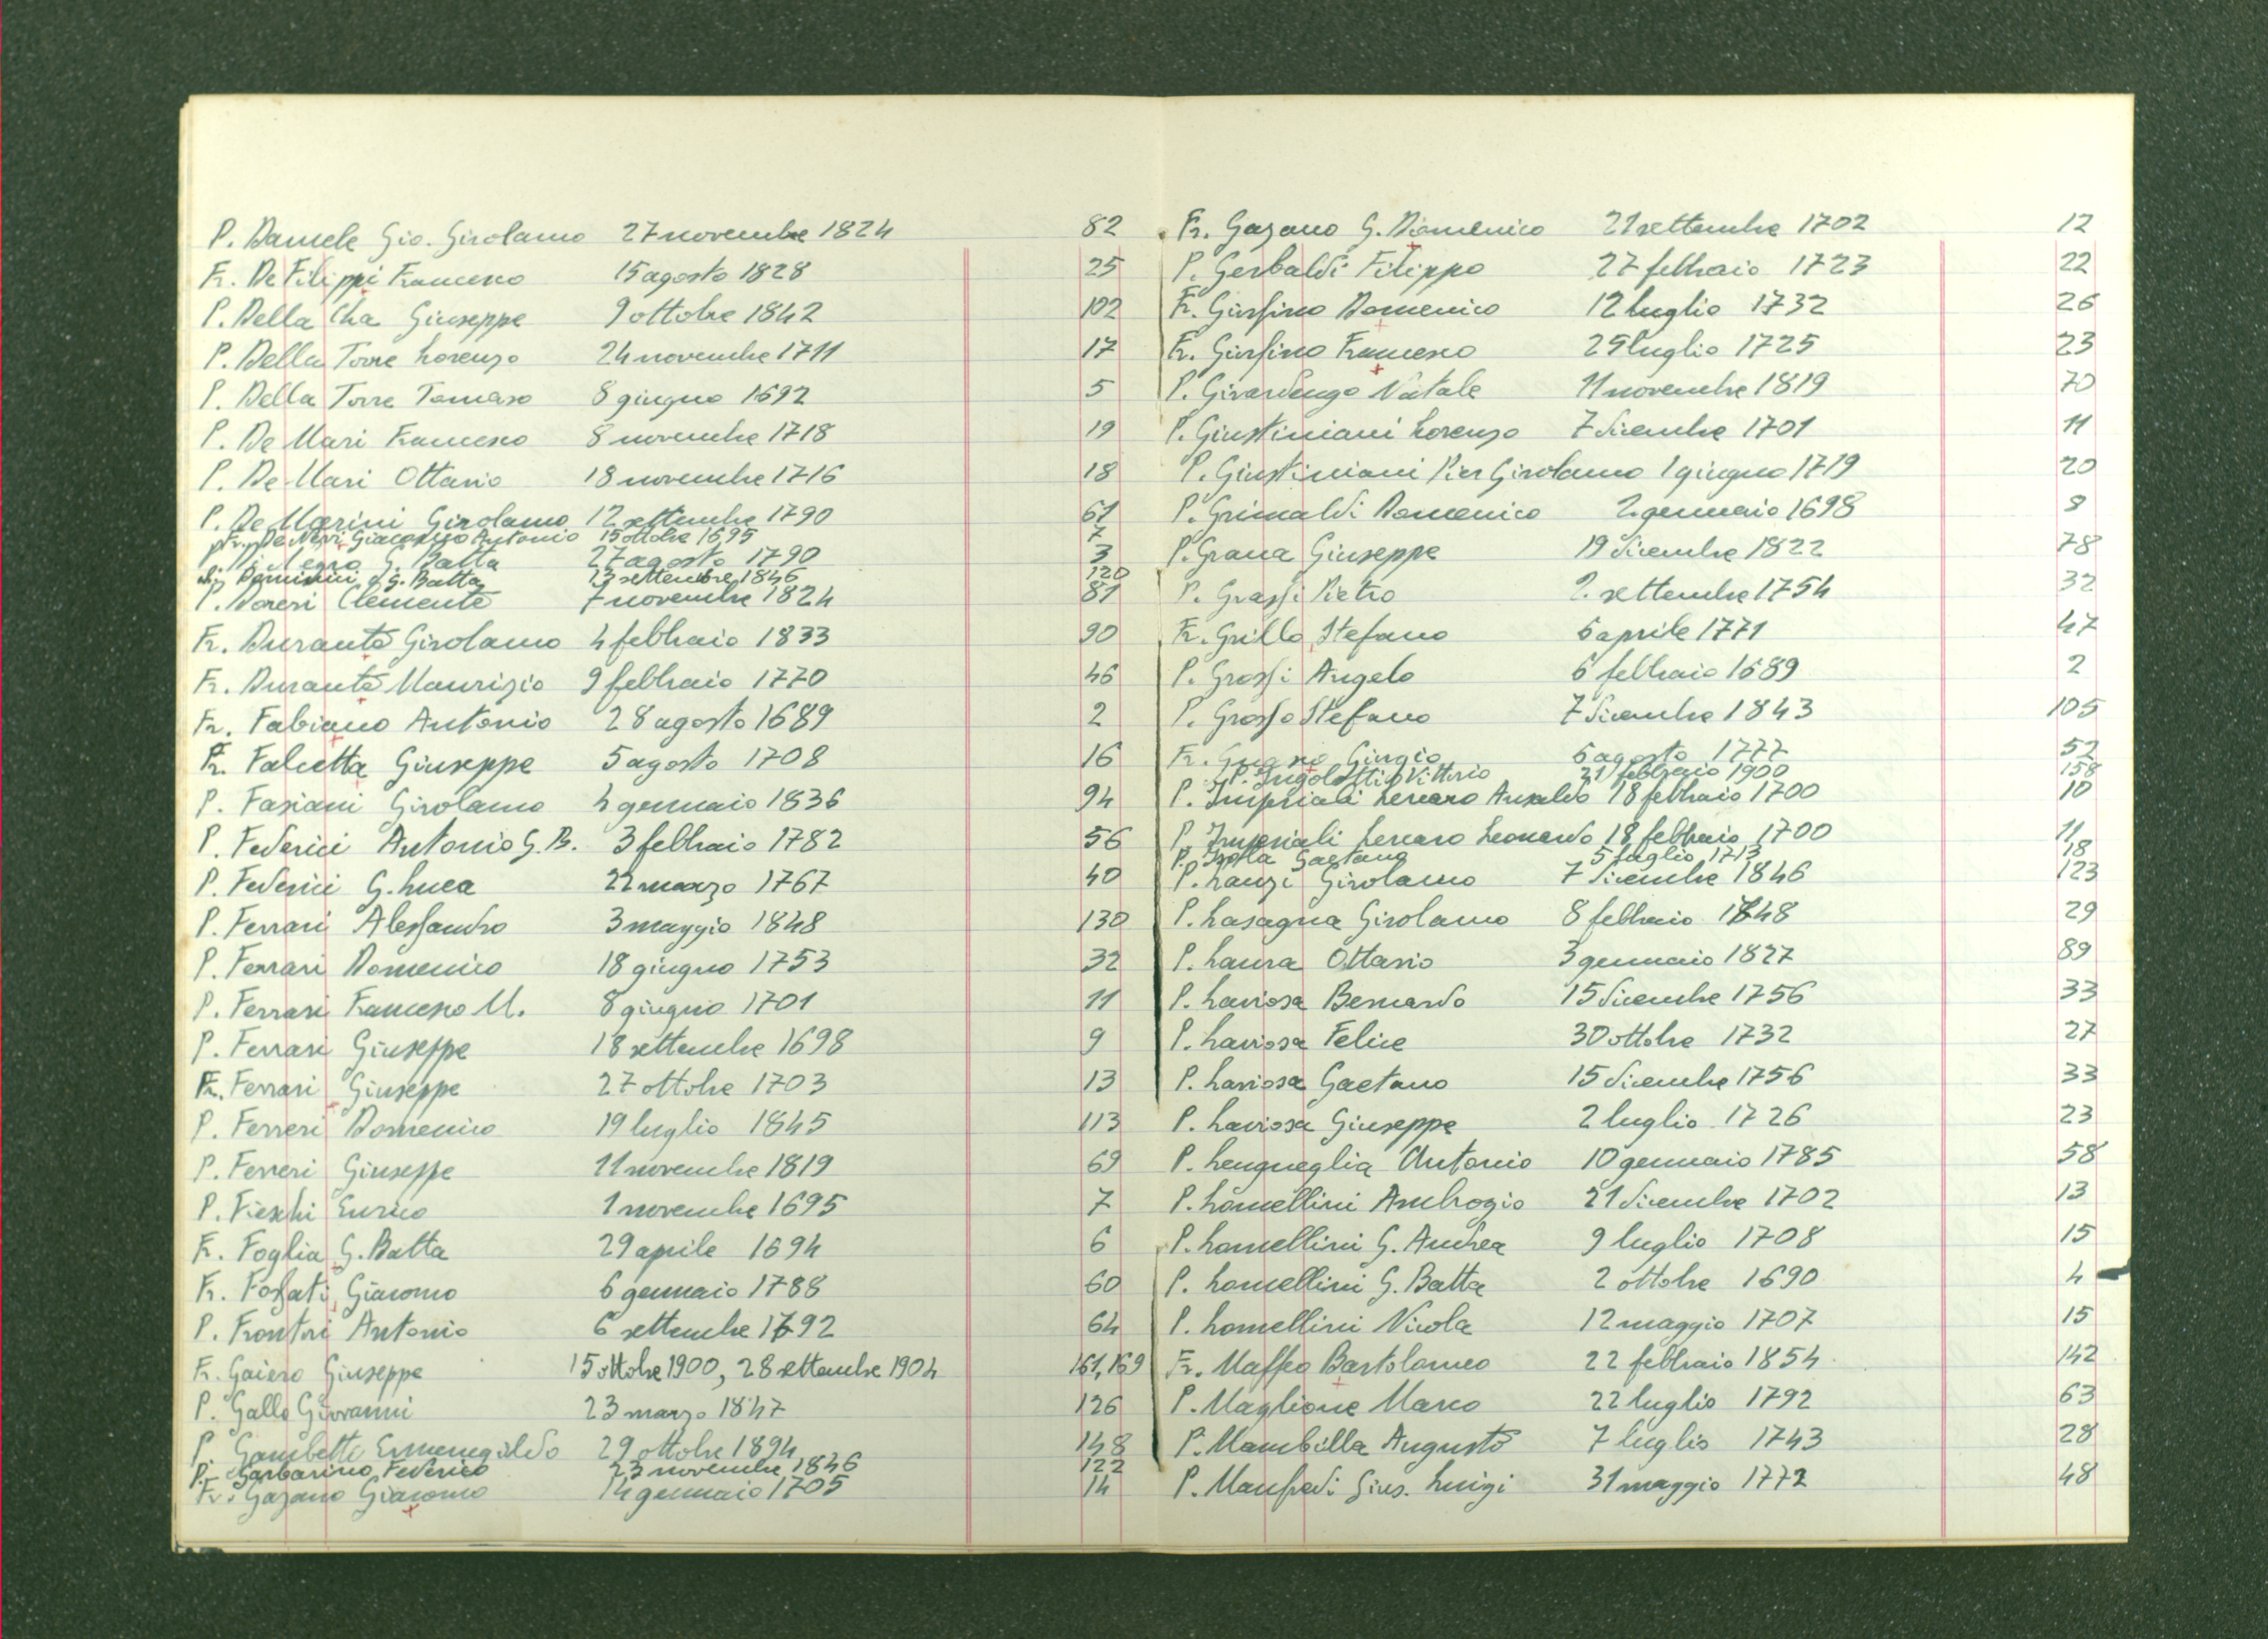 P. Daniele Gio. Girolamo 27 novembre 1824 82
Fr. De Filippi Francesco 15 agosto 1828 25
P. Della Cha Giuseppe 9 ottobre 1842 102
P. Della Torre Lorenzo 24 novembre 1711 17
P. Della Torre Tomaso 8 giugno 1692 5
P. De Mari Francesco 8 novembre 1718 19
P. De Mari Ottavio 18 novembre 1716 18
P. De Marini Girolamo 12 settembre 1790 61
Fr. De Neri Giacomo Antonio 15 ottobre 1695 7
Negro G. Batta 27 agosto 1790 3
Dominini G. Batta 13 settembre 1846 120
P. Doreri Clemente 7 novembre 1824 81
Fr. Durante Girolamo 4 febbraio 1833 90
Fr. Durante Maurizio 9 febbraio 1770 46
Fr. Fabiano Antonio 28 agosto 1689 2
Fr. Falcetta Giuseppe 5 agosto 1708 16
P. Fasiani Girolamo 4 gennaio 1836 94
P. Federici Antonio G.B. 3 febbraio 1782 56
P. Federici G. Luca 22 marzo 1767 40
P. Ferrari Alessandro 3 maggio 1848 130
P. Ferrari Domenico 18 giugno 1753 32
P. Ferrari Francesco M. 8 giugno 1701 11
P. Ferrari Giuseppe 18 settembre 1698 9
Fr. Ferrari Giuseppe 27 ottobre 1703 13
P. Ferreri Domenico 19 luglio 1845 113
P. Ferreri Giuseppe 11 novembre 1819 69
P. Fieschi Enrico 1 novembre 1695 7
Fr. Foglia G. Batta 29 aprile 1694 6
Fr. Fossati Giacomo 6 gennaio 1788 60
P. Frontori Antonio 6 settembre 1792 64
Fr. Gaiero Giuseppe 15 ottobre 1900, 28 settembre 1904 161, 169
P. Gallo Giovanni 23 marzo 1847 126
P. Gambetti Ermenegildo 29 ottobre 1894 148
P. Garbarino Federico 23 novembre 1846 122
Fr. Gazano Giacomo 14 gennaio 1705 14
Fr. Gazano G. Domenico 21 settembre 1702 12
P. Gerbaldi Filippo 27 febbraio 1723 22
Fr. Giusfino Domenico 12 luglio 1732 26
Fr. Giusfino Francesco 25 luglio 1725 23
P. Girardengo Natale 11 novembre 1819 70
P. Giustiniani Lorenzo 7 dicembre 1701 11
P. Giustiniani Pier Girolamo 1 giugno 1719 20
P. Grimaldi Domenico 2 gennaio 1698 8
P. Grana Giuseppe 19 dicembre 1822 78
P. Grassi Pietro 2 settembre 1754 32
Fr. Grillo Stefano 6 aprile 1771 47
P. Grossi Angelo 6 febbraio 1689 2
P. Grosso Stefano 7 dicembre 1843 105
Fr. Giorgio 6 agosto 1777 52
P. Ingolotti Vittorio 21 febbraio 1900 158
P. Imperiali Lercaro Ansaldo 18 febbraio 1700 10
P. Imperiali Lercaro Leonardo 18 febbraio 1700 11
P. Isola Gaetano 5 luglio 1713 18
P. Lanzi Girolamo 7 dicembre 1846 123
P. Lasagna Girolamo 8 febbraio 1748 29
P. Laura Ottavio 3 gennaio 1827 89
P. Laviosa Bernardo 15 dicembre 1756 33
P. Laviosa Felice 30 ottobre 1732 27
P. Laviosa Gaetano 15 dicembre 1756 33
P. Laviosa Giuseppe 2 luglio 1726 23
P. Lengueglia Antonio 10 gennaio 1785 58
P. Lomellini Ambrogio 21 dicembre 1702 13
P. Lomellini G. Andrea 9 luglio 1708 15
P. Lomellini G. Batta 2 ottobre 1690 4
P. Lomellini Nicola 12 maggio 1707 15
Fr. Maffeo Bartolomeo 22 febbraio 1854 142
P. Maglione Marco 22 luglio 1792 63
P. Mambilla Augusto 7 luglio 1743 28
P. Manfredi Gius. Luigi 31 maggio 1772 48